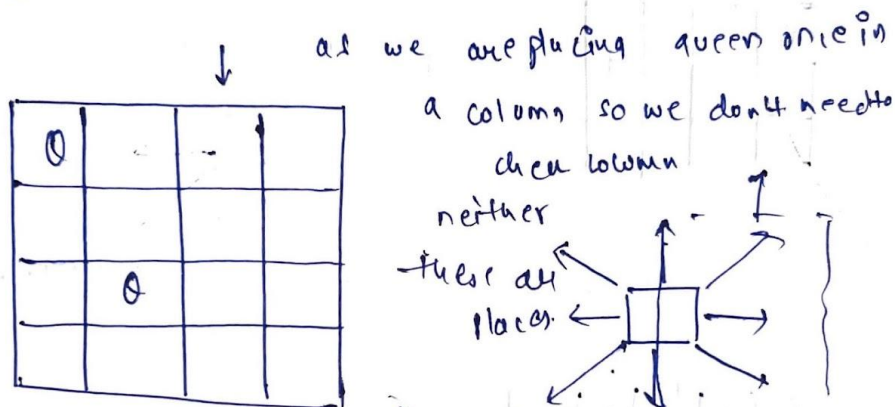 as we are placing queen once in
a column so we don't need to
check column
neither
these are
places.
Q
Q